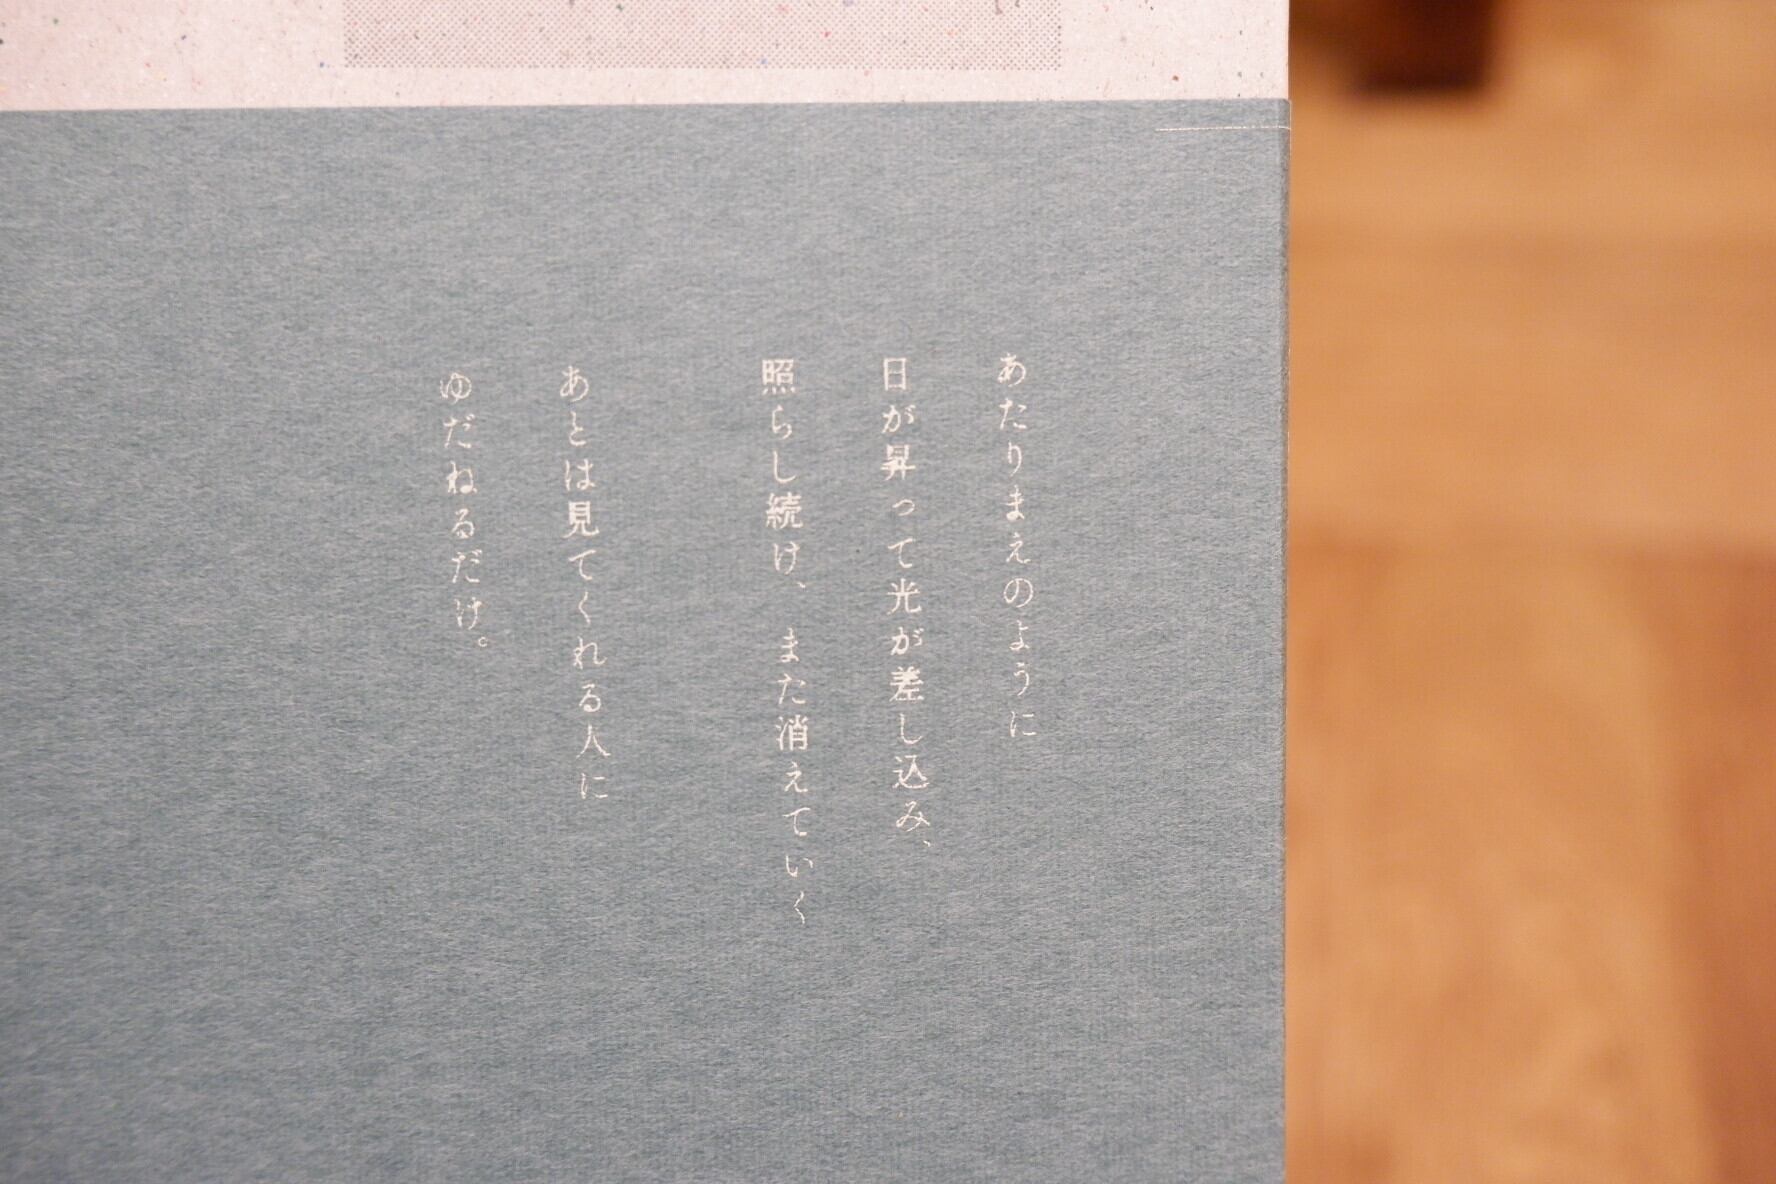 あたりまえのように
日が昇って光が差し込み、
照らし続け、また消えていく
あとは見てくれる人に
ゆだねるだけ。